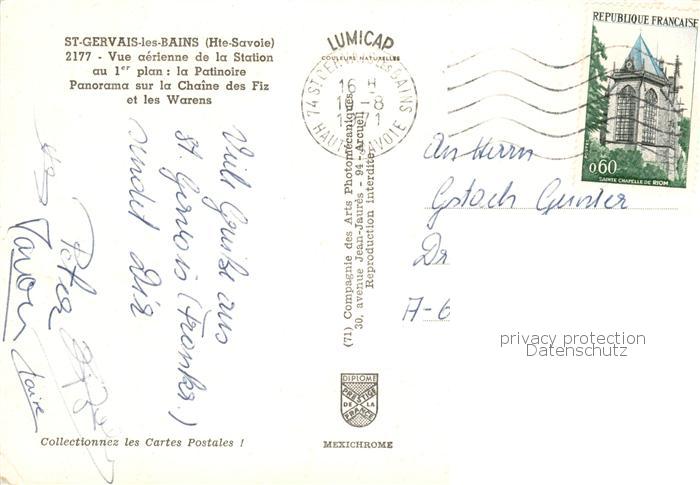 ST-GERVAIS-les-BAINS (Hte-Savoie)
2177 - Vue aérienne de la Station
au 1er plan : la Patinoire
Panorama sur la Chaîne des Fiz
et les Warens
LUMICAP
COULEURS NATURELLES
16 H
74 HAUTE SAVOIE
REPUBLIQUE FRANCAISE
0,60
SAINTE CHAPELLE DE RIOM
Viele Grüße aus
St. Gervais (Frankr.)
sendet Dir
Peter
(71) Compagnie des Arts Photomécaniques
30, avenue Jean-Jaurès - 94 - Arcueil
Reproduction interdite
An Herrn
Gstach Günter
Dr
A-6
privacy protection
Datenschutz
DIPLOME
PRESTIGE
DE LA
FRANCE
MEXICHROME
Collectionnez les Cartes Postales !